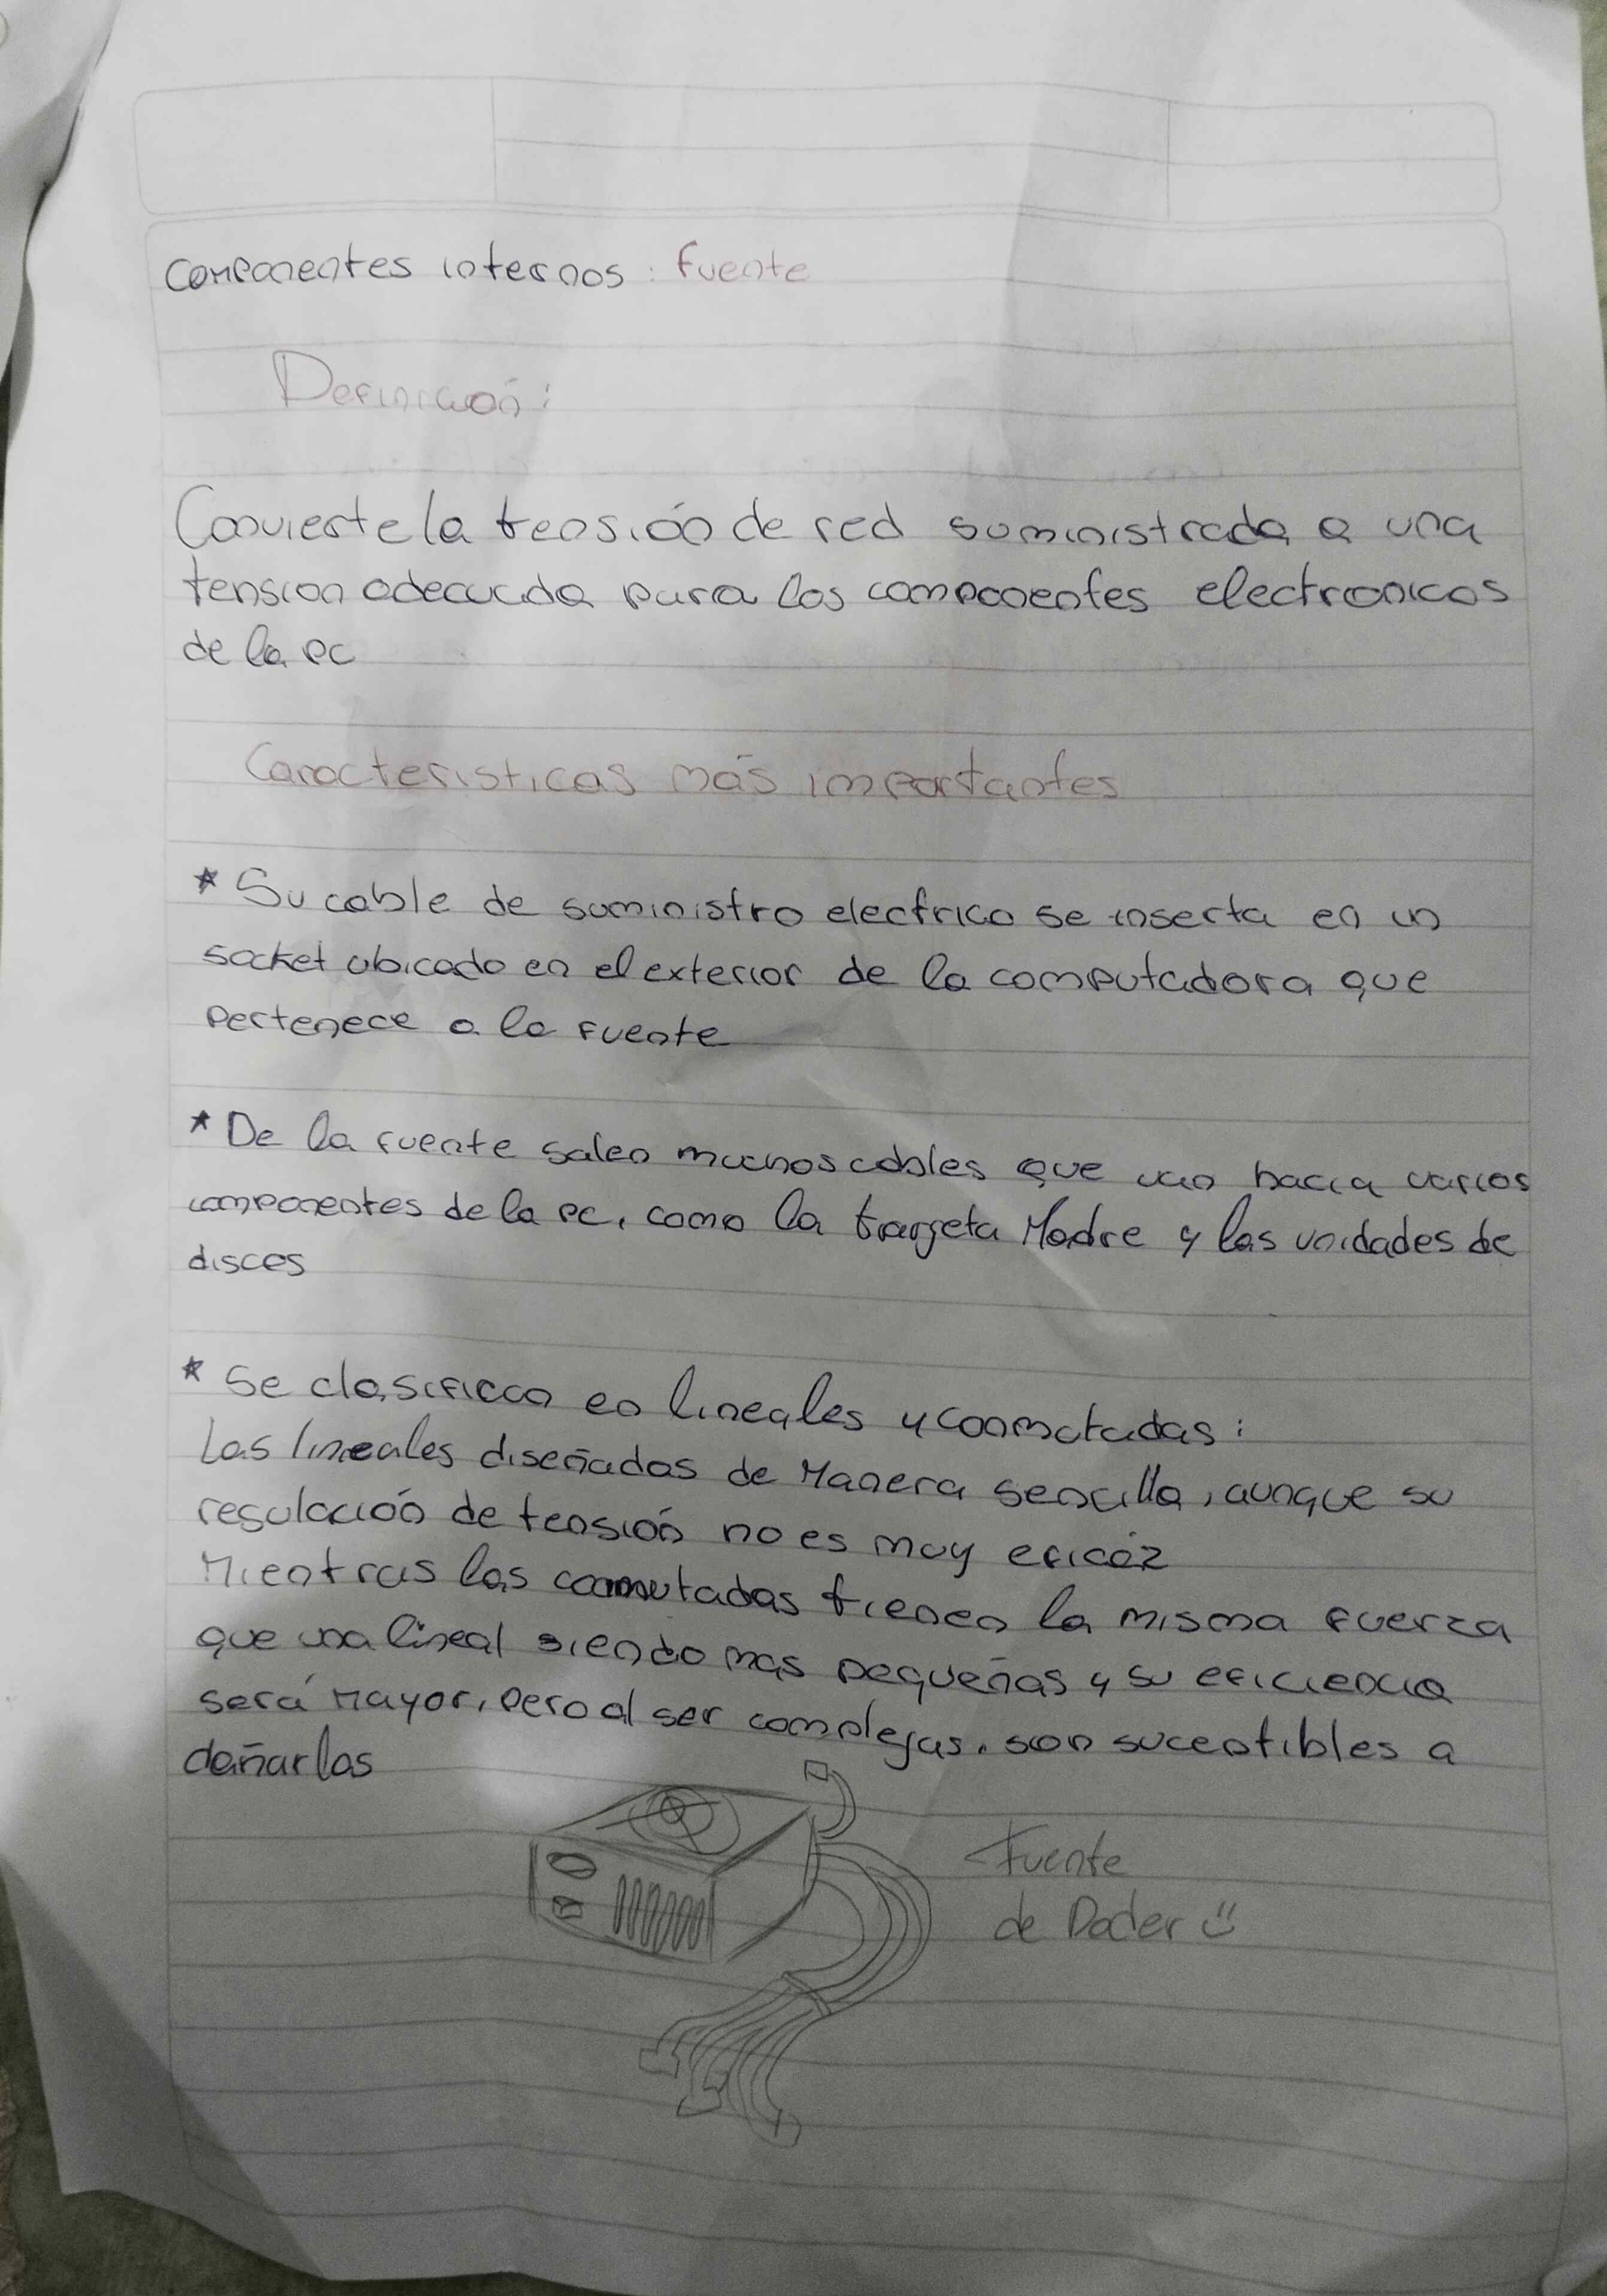 Componentes internos: fuente
Definición:
Convierte la tensión de red suministrada a una
tension adecuada para los componentes electronicos
de la pc
Caracteristicas más importantes
* Su cable de suministro electrico se inserta en un
socket ubicado en el exterior de la computadora que
pertenece a la fuente
* De la fuente salen muchos cables que van hacia varios
componentes de la pc, como la targeta Madre y las unidades de
discos
* Se clasifican en lineales y conmutadas:
Las lineales diseñadas de Manera sencilla, aunque su
regulación de tensión no es muy eficáz
Mientras las conmutadas tienen la misma fuerza
que una lineal siendo mas pequeñas y su eficiencia
será mayor, pero al ser complejas, son suceptibles a
dañarlas
Fuente
de Poder